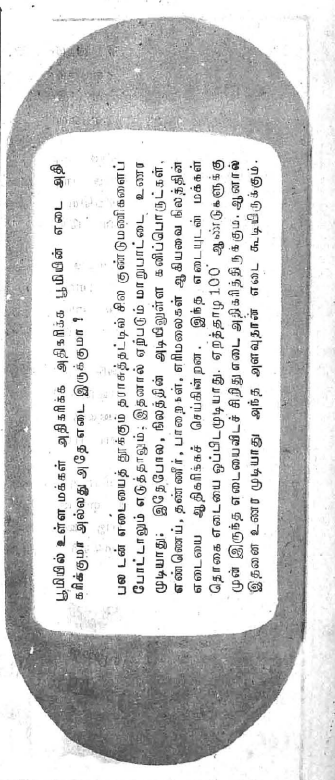 பூமியில் உள்ள மக்கள் அதிகரிக்க அதிகரிக்க பூமியின் எடை அதி
கரிக்குமா அல்லது அதே எடை இருக்குமா ?
பல டன் எடையைத் தூக்கும் தராசுத்தட்டில் சில குண்டுமணிகளைப்
போட்டாலும் எடுத்தாலும்; இதனால் ஏற்படும் மாறுபாட்டை உணர
முடியாது; இதேபோல, நிலத்தின் அடியிலுள்ள கனிப்பொருட்கள்,
எண்ணெய், தண்ணீர், பாறைகள், எரிமலைகள் ஆகியவை நிலத்தின்
எடையை அதிகரிக்கச் செய்கின்றன. இந்த எடையுடன் மக்கள்
தொகை எடையை ஒப்பிடமுடியாது. ஏறத்தாழ 100 ஆண்டுகளுக்கு
முன் இருந்த எடையைவிடச் சிறிது எடை அதிகரித்திருக்கும். ஆனால்
இதனை உணர முடியாது. அந்த அளவுதான் எடை கூடியிருக்கும்.